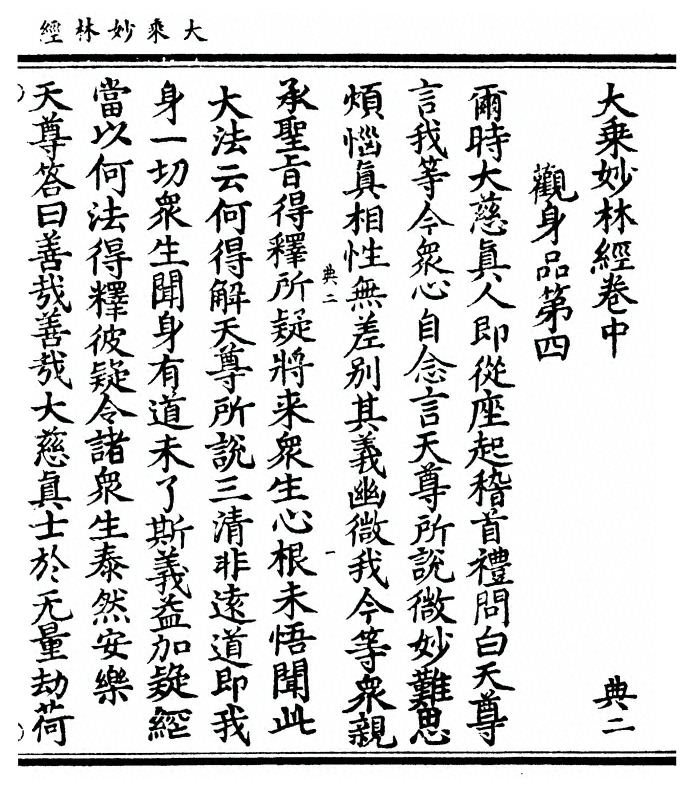 大乘妙林經
大乘妙林經卷中
典二
觀身品第四
爾時大慈眞人即從座起稽首禮問白天尊
言我等今衆心自念言天尊所說微妙難思
煩惱眞相性無差别其義幽微我今等衆親
典二
一
承聖旨得釋所疑將来衆生心根未悟聞此
大法云何得解天尊所說三清非遠道即我
身一切衆生聞身有道未了斯義益加疑經
當以何法得釋彼疑令諸衆生泰然安樂
天尊答曰善哉善哉大慈眞士於无量劫荷